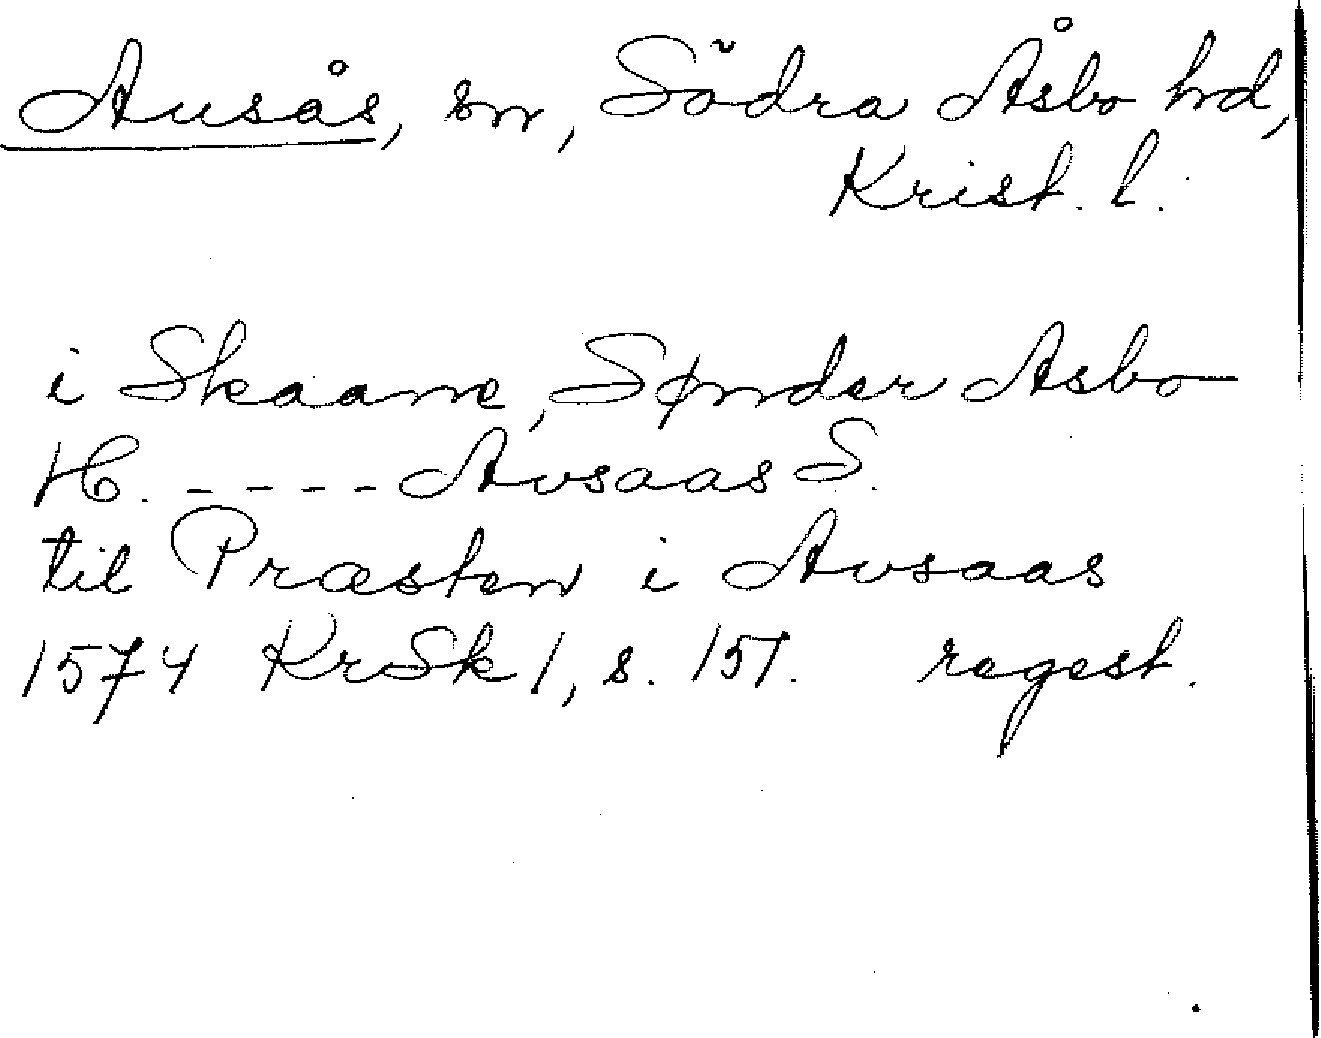 Ausås, sn, Södra Åsbo hd,
Krist. l.
i Skaane, Sønder Asbo
H. - - - - Avsaas S.
til Præsten i Avsaas
1574 KrSk 1, s. 151. regest.